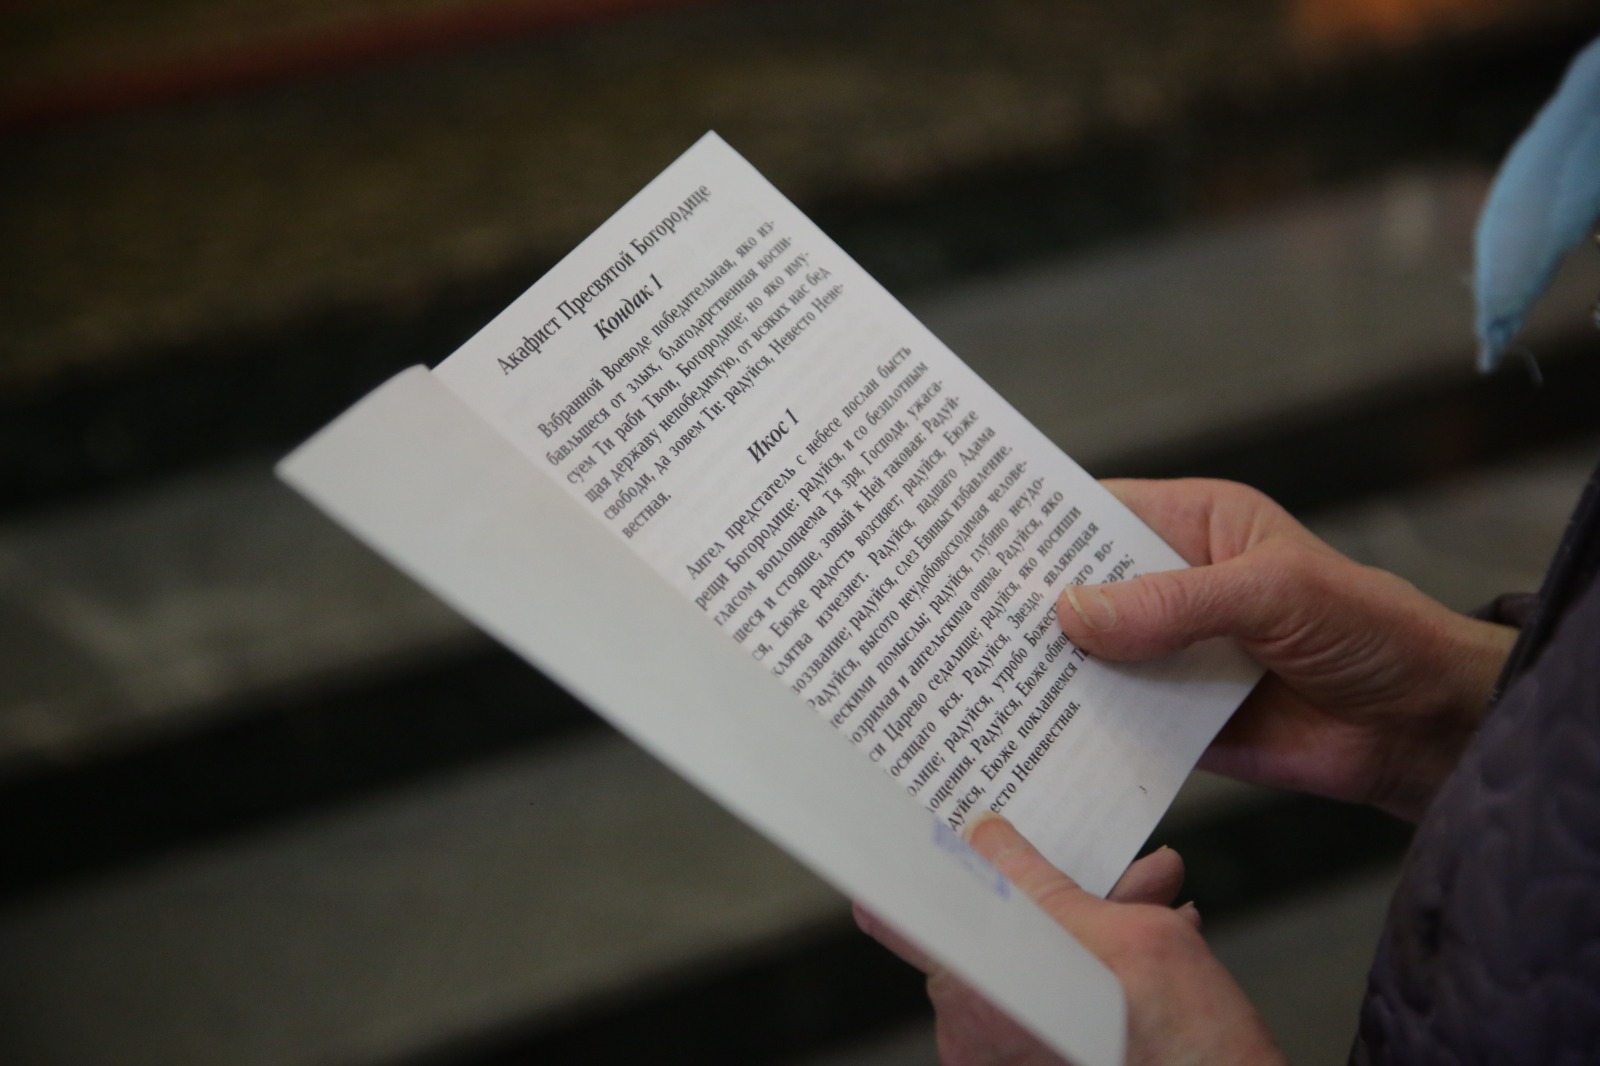 Акафист Пресвятой Богородице
Кондак 1
Взбранной Воеводе победительная, яко из-
бавльшеся от злых, благодарственная воспи-
суем Ти раби Твои, Богородице; но яко иму-
щая державу непобедимую, от всяких нас бед
свободи, да зовем Ти: радуйся, Невесто Нене-
вестная.
Икос 1
Ангел предстатель с небесе послан бысть
рещи Богородице: радуйся, и со безплотным
гласом воплощаема Тя зря, Господи, ужаса-
шеся и стояше, зовый к Ней таковая: Радуй-
ся, Еюже радость возсияет; радуйся, Еюже
клятва изчезнет. Радуйся, падшаго Адама
воззвание; радуйся, слез Евиных избавление.
Радуйся, высото неудобовосходимая челове-
ческими помыслы; радуйся, глубино неудо-
озримая и ангельскима очима. Радуйся, яко
си Царево седалище; радуйся, яко носиши
осящаго вся. Радуйся, Звездо, являющая
олнце; радуйся, утробо Божест аго во-
лощения. Радуйся, Еюже обно варь;
дуйся, Еюже покланяемся Т
есто Неневестная.